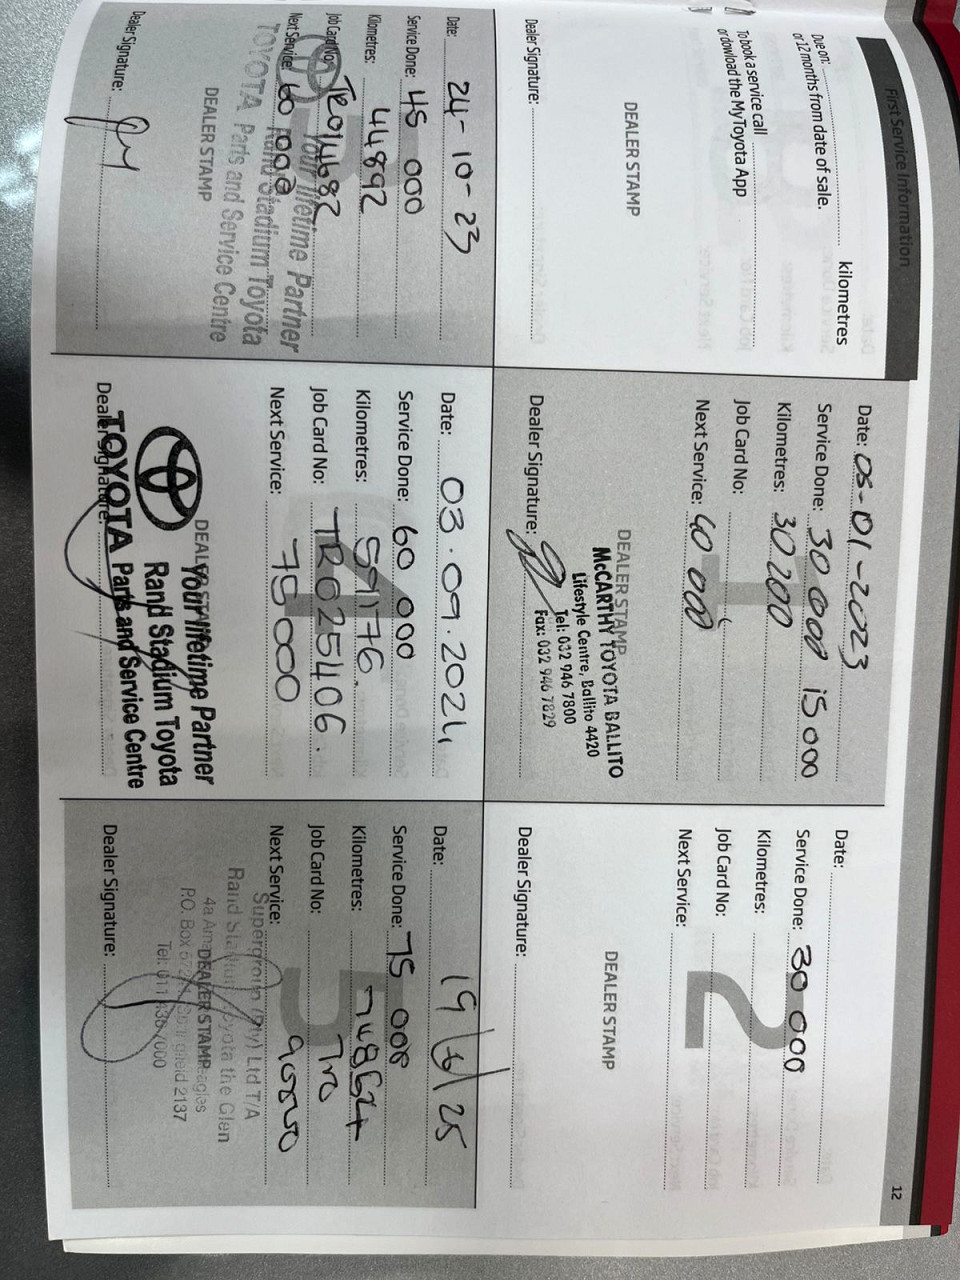 First Service Information
12
Due on: kilometres
or 12 months from date of sale.
To book a service call
or dowload the MyToyota App
DEALER STAMP
Dealer Signature:
Date: 05-01-2023
Service Done: 30 000 15 000
Kilometres: 30 200
Job Card No:
Next Service:
1
DEALER STAMP
McCARTHY TOYOTA BALLITO
Lifestyle Centre, Ballito 4420
Tel: 032 946 7800
Fax: 032 946 7829
Dealer Signature:
Date:
Service Done: 30 000
Kilometres:
Job Card No:
Next Service:
2
DEALER STAMP
Dealer Signature:
Date: 24-10-23
Service Done: 45 000
Kilometres: 44892
Job Card No: TR014682
Next Service: 60 000
Your lifetime Partner
Rand Stadium Toyota
TOYOTA Parts and Service Centre
DEALER STAMP
Dealer Signature:
Date: 03.09.2024
Service Done: 60 000
Kilometres: 59176.
Job Card No: TR025406.
Next Service: 75000
4
DEALER STAMP
Your lifetime Partner
Rand Stadium Toyota
TOYOTA Parts and Service Centre
Dealer Signature:
Date: 19/6/25
Service Done: 75 000
Kilometres:
Job Card No:
Next Service: 90000
5
Supergroup (Pty) Ltd T/A
Rand Stadium Toyota the Glen
DEALER STAMP
2137
Dealer Signature: